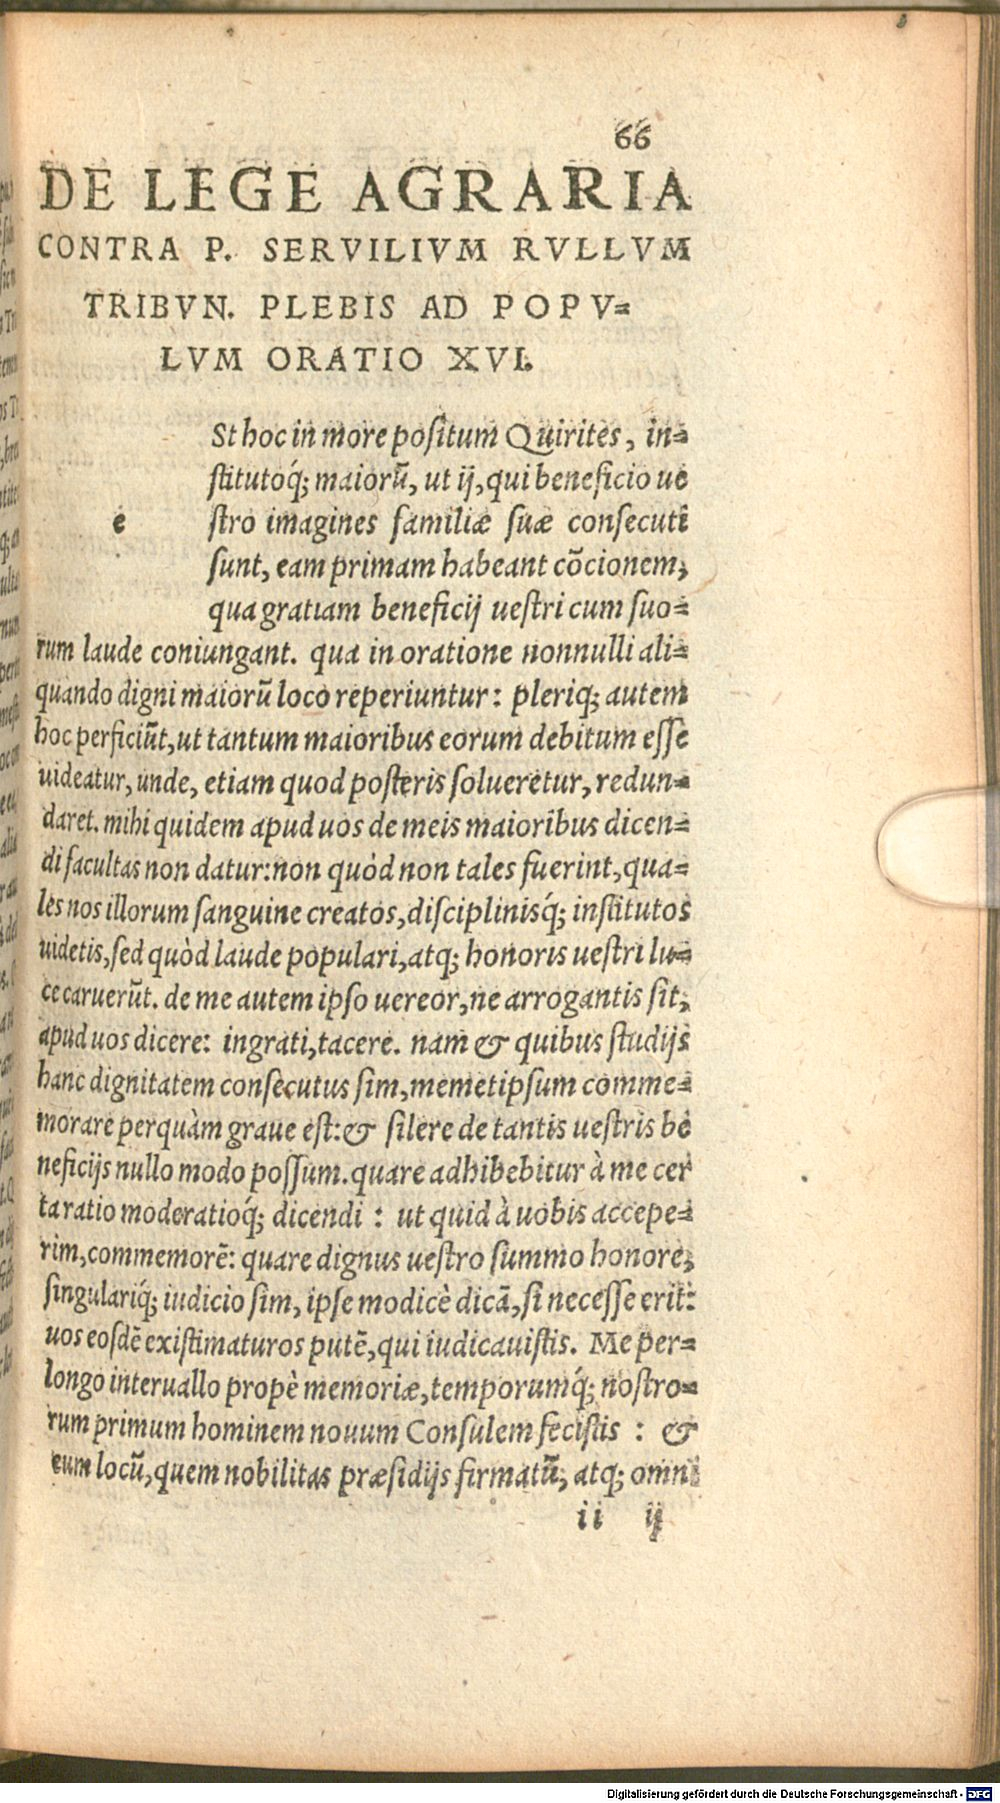 66
DE LEGE AGRARIA
CONTRA P. SERVILIVM RVLLVM
TRIBVN. PLEBIS AD POPV=
LVM ORATIO XVI.
St hoc in more positum Quirites, in=
stitutoq́; maiorū, ut ij, qui beneficio ue
e stro imagines familiæ suæ consecuti
sunt, eam primam habeant cōcionem,
qua gratiam beneficij uestri cum suo=
rum laude coniungant. qua in oratione nonnulli ali=
quando digni maiorū loco reperiuntur: pleriq; autem
hoc perficiūt, ut tantum maioribus eorum debitum esse
uideatur, unde, etiam quod posteris solueretur, redun=
daret. mihi quidem apud uos de meis maioribus dicen=
di facultas non datur: non quòd non tales fuerint, qua=
les nos illorum sanguine creatos, disciplinisq́; institutos
uidetis, sed quòd laude populari, atq; honoris uestri lu=
ce caruerūt. de me autem ipso uereor, ne arrogantis sit,
apud uos dicere: ingrati, tacere. nam & quibus studijs
hanc dignitatem consecutus sim, memetipsum comme=
morare perquàm graue est: & silere de tantis uestris be
neficijs nullo modo possum. quare adhibebitur à me cer
ta ratio moderatioq́; dicendi : ut quid à uobis accepe=
rim, commemorē: quare dignus uestro summo honore,
singulariq́; iudicio sim, ipse modicè dicā, si necesse erit:
uos eosdē existimaturos putē, qui iudicauistis. Me per=
longo interuallo propè memoriæ, temporumq́; nostro=
rum primum hominem nouum Consulem fecistis : &
eum locū, quem nobilitas præsidijs firmatū, atq; omni
ii ij
Digitalisierung gefördert durch die Deutsche Forschungsgemeinschaft - DFG